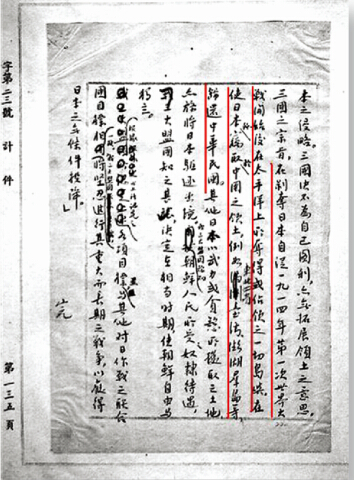 本之侵略。三國決不為自己圖利,亦無拓展領土之意思。
三國之宗旨,在剝奪日本自從一九一四年第一次世界大
戰開始後在太平洋上所奪得或佔領之一切島嶼;在
使日本所竊取中國之領土,例如東北四省台灣、澎湖群島等,
歸還中華民國;其他日本以武力或貪慾所攫取之土地
亦務將日本驅逐出境;朝鮮人民所受奴隸待遇,
我三大盟國稔知
三大盟國知之甚 決定在相當時期,使朝鮮自由與
獨立。
根據以上所認定之各項目標並與其他對日作戰之聯合
國目標一致 堅忍進行其重大而長期之戰爭,以獲得
日本之無條件投降。」
完
字第二三號 計 件 第一三五頁